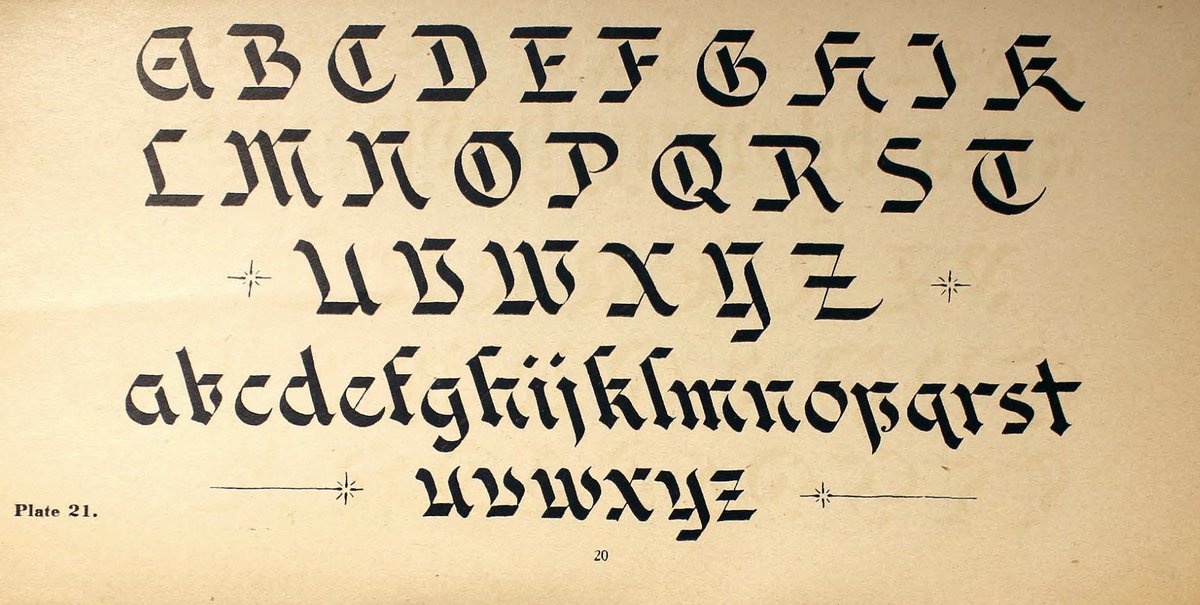 A B C D E F G H I K
L M N O P Q R S T
U V W X Y Z
a b c d e f g h i j k l m n o p q r s t
u v w x y z
Plate 21.
20